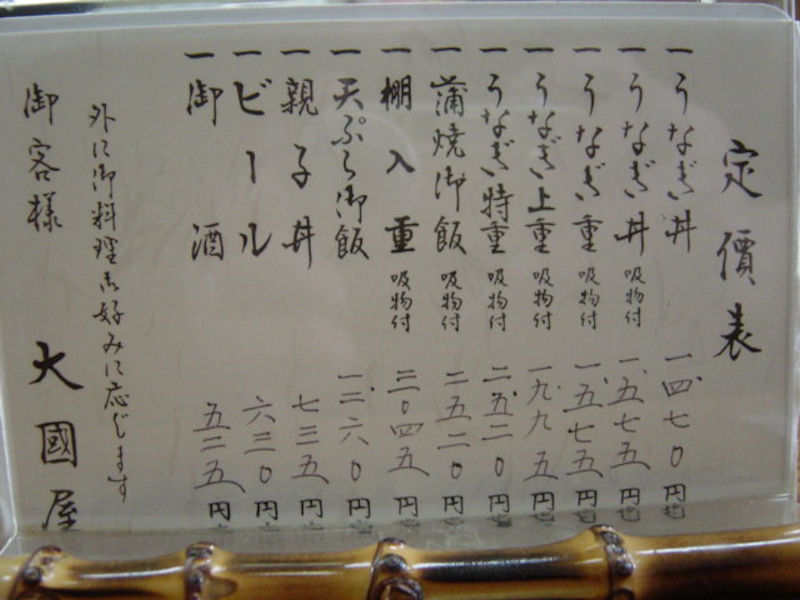 定價表
一 うなぎ丼 一、四七0円
一 うなぎ丼 吸物付 一、五七五円
一 うなぎ重 吸物付 一、五七五円
一 うなぎ上重 吸物付 一、九九五円
一 うなぎ特重 吸物付 二、五二0円
一 蒲焼御飯 吸物付 二五二0円
一 棚入重 吸物付 三0四五円
一 天ぷら御飯 一、二六0円
一 親子丼 七三五円
一 ビール 六三0円
一 御酒 五二五円
外に御料理御好みに応じます
御客様 大國屋